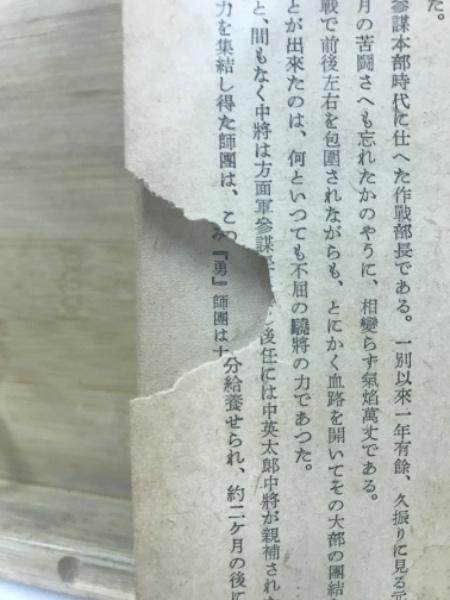 た。
參謀本部時代に仕へた作戰部長である。一別以來一年有餘、久振りに見る元
月の苦鬪さへも忘れたかのやうに、相變らず氣焰萬丈である。
戰で前後左右を包圍されながらも、とにかく血路を開いてその大部の團結
とが出來たのは、何といつても不屈の驍將の力であつた。
と、間もなく中將は方面軍參謀長 後任には中英太郞中將が親補され
力を集結し得た師團は、こつ
『勇』師團は十分給養せられ、約二ケ月の後に